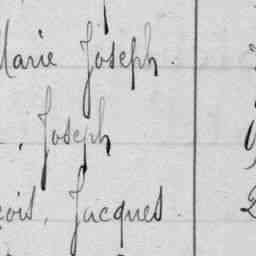 Marie Joseph.
, Joseph
çois, Jacques.